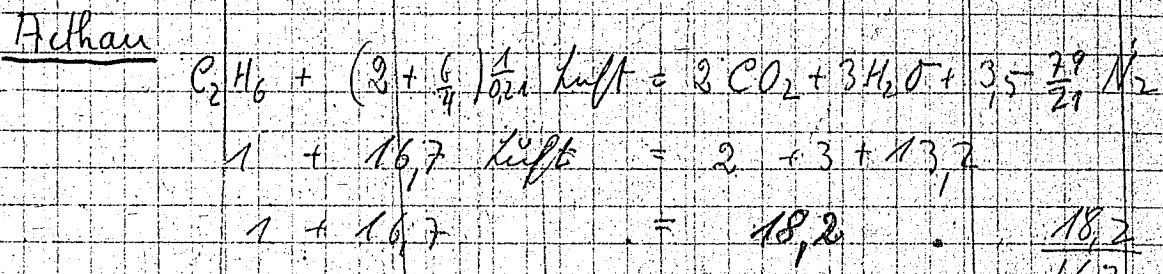 Aethan
C₂H₆ + (2 + 6/4) 1/0,21 Luft = 2 CO₂ + 3H₂O + 3,5 79/21 N₂
1 + 16,7 Luft = 2 + 3 + 13,2
1 + 16,7 = 18,2 18,2